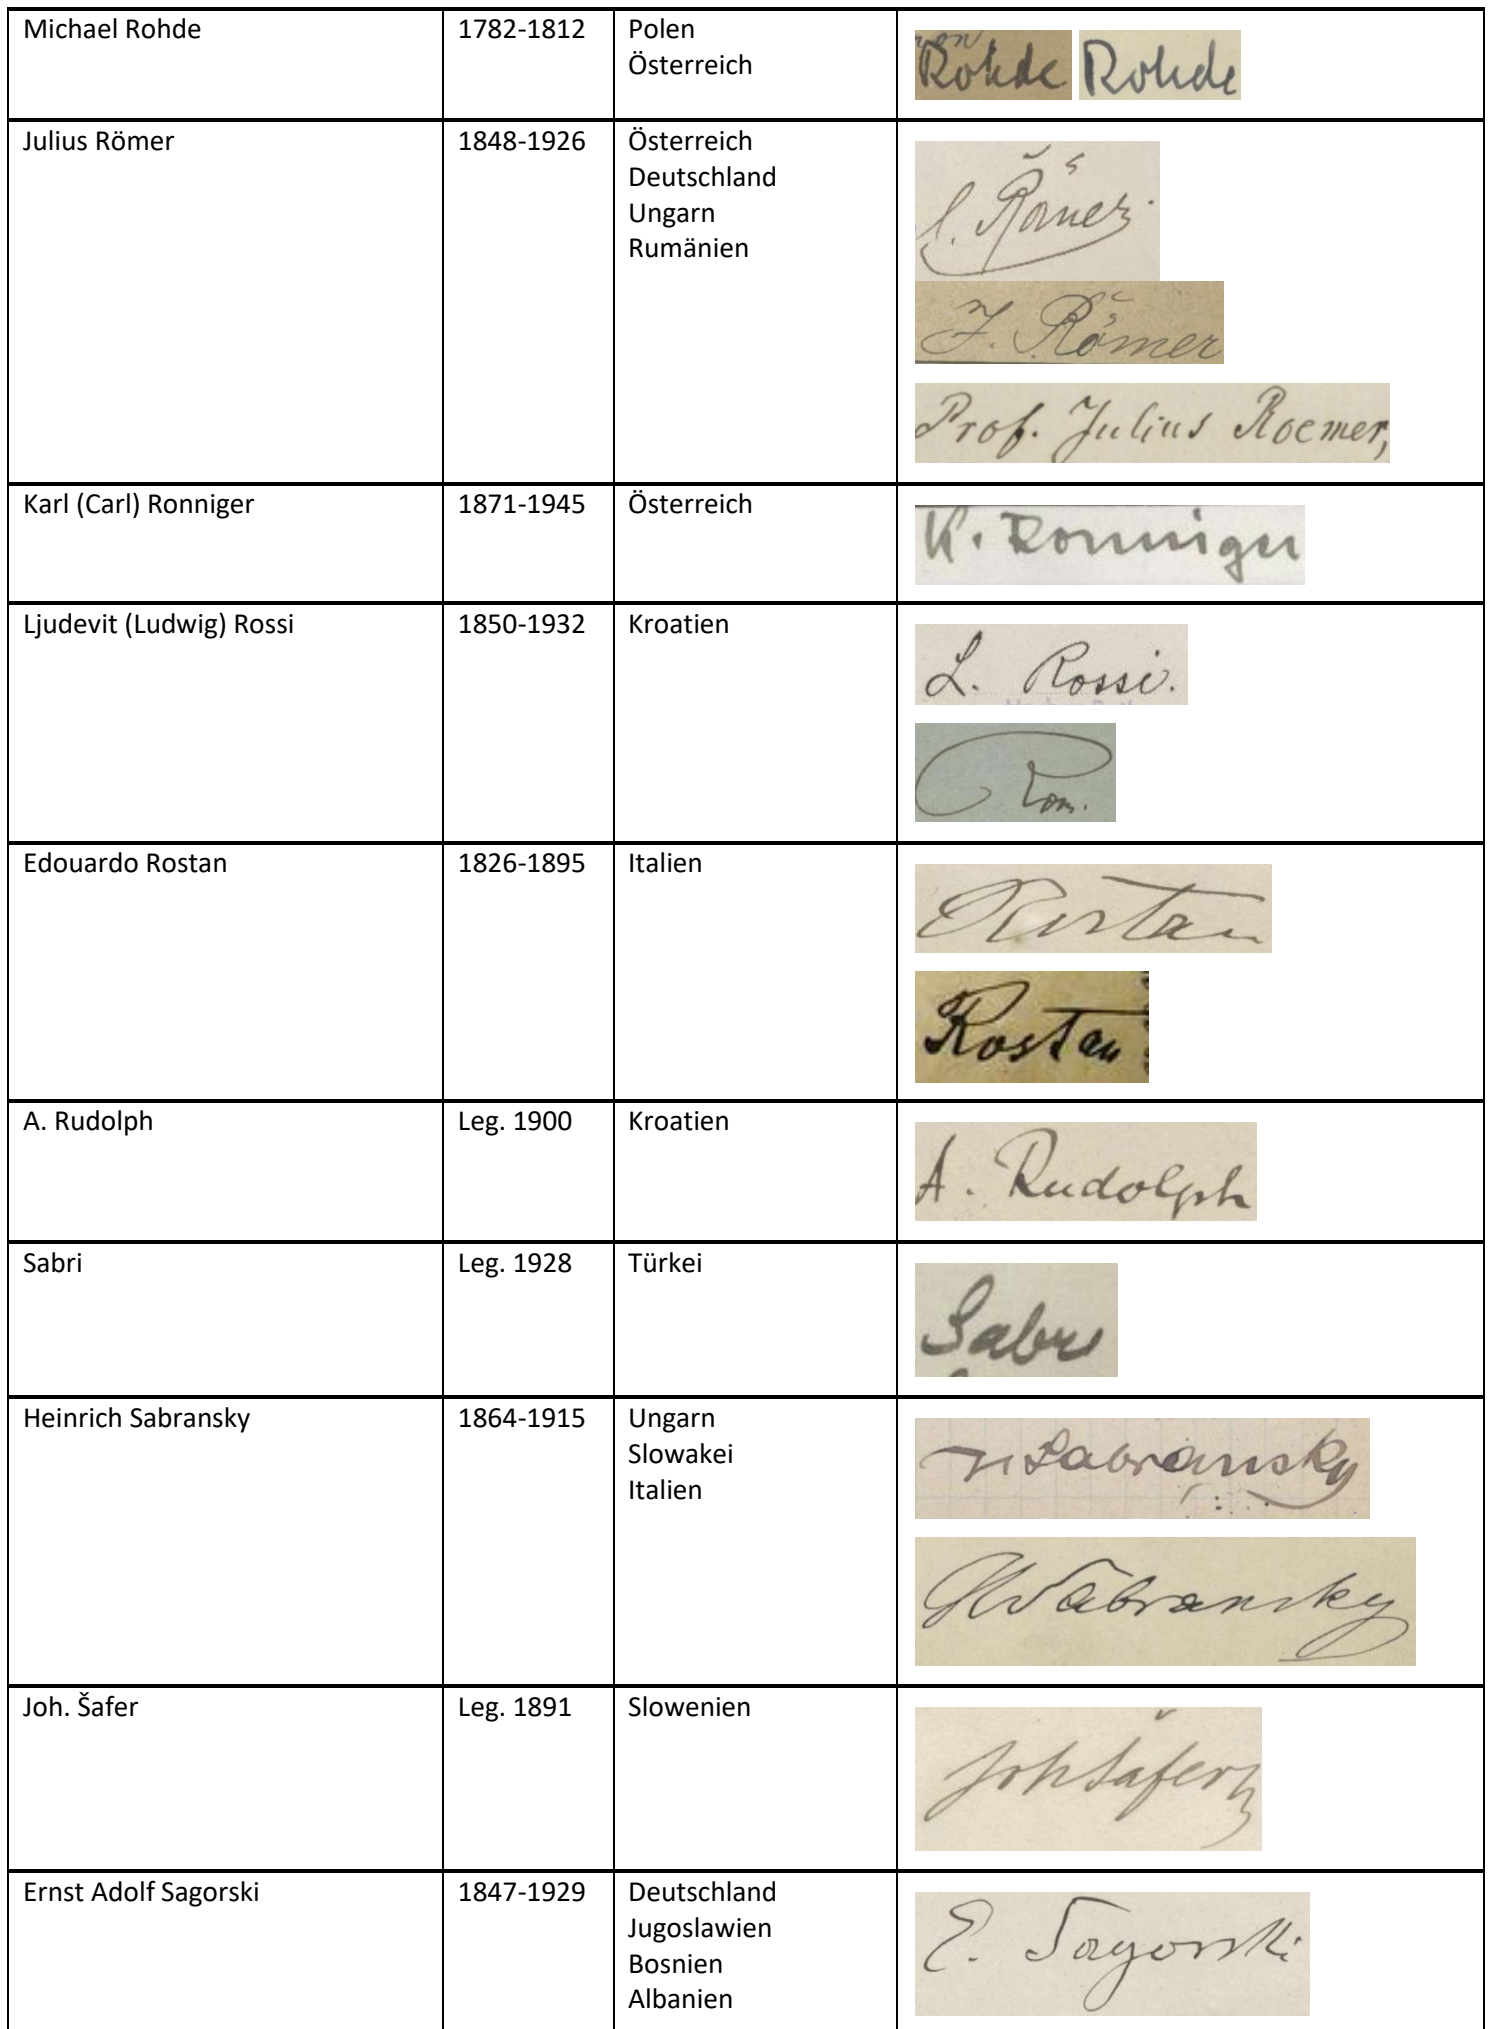 Michael Rohde 1782-1812 Polen
Österreich
Rohde Rohde
Julius Römer 1848-1926 Österreich
Deutschland
Ungarn
Rumänien
Römer
J. Römer
Prof. Julius Roemer,
Karl (Carl) Ronniger 1871-1945 Österreich
K. Ronniger
Ljudevit (Ludwig) Rossi 1850-1932 Kroatien
L. Rossi.
Edouardo Rostan 1826-1895 Italien
Rostan
Rostan
A. Rudolph Leg. 1900 Kroatien
A. Rudolph
Sabri Leg. 1928 Türkei
Sabri
Heinrich Sabransky 1864-1915 Ungarn
Slowakei
Italien
H Sabransky
HSabransky
Joh. Šafer Leg. 1891 Slowenien
Joh Šafer
Ernst Adolf Sagorski 1847-1929 Deutschland
Jugoslawien
Bosnien
Albanien
E. Sagorski